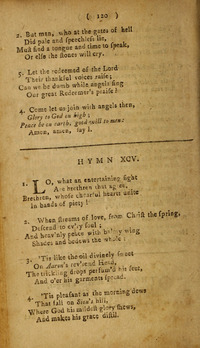 ( 120 )
2. But men, who at the gates of hell
Did pale and speechless lie,
Must find a tongue and time to speak,
Or else the stones will cry.
3. Let the redeemed of the Lord
Their thankful voices raise;
Can we be dumb while angels sing
Our great Redeemer's praise?
4. Come let us join with angels then,
Glory to God on high;
Peace be on earth, good will to men:
Amen, amen, say I.
HYMN XCV.
1. LO, what an entertaining sight
Are brethren that agree,
Brethren, whose chearful hearts unite
In bands of piety!
2. When streams of love, from Christ the spring,
Descend to ev'ry soul;
And heav'nly peace with balmy wing
Shades and bedews the whole:
3. 'Tis like the oil divinely sweet
On Aaron's rev'rend head,
The trickling drops perfum'd his feet,
And o'er his garments spread.
4. 'Tis pleasant as the morning dews
That fall on Sion's hill,
Where God his mildest glory shews,
And makes his grace distil.